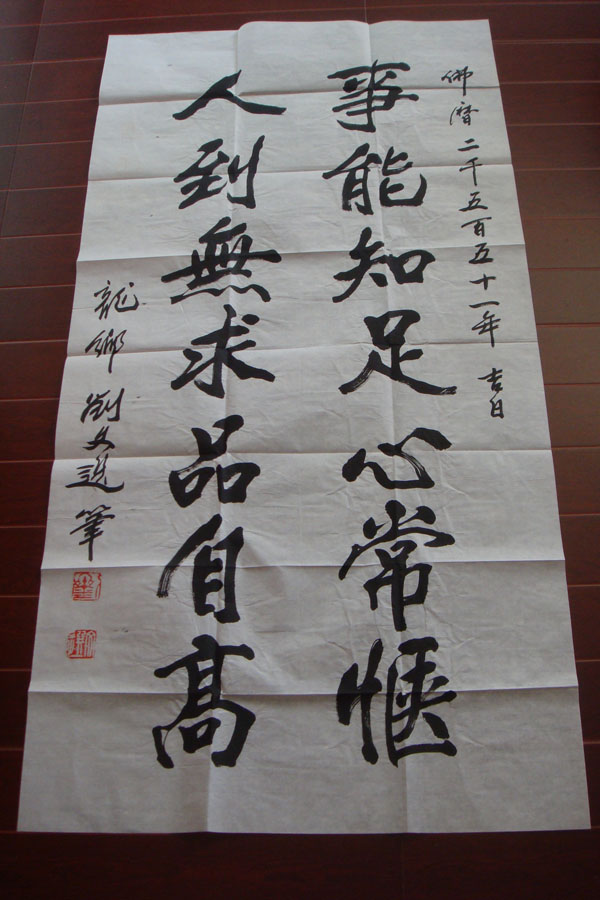 佛曆二千五百五十一年 吉日
事能知足心常愜
人到無求品自高
龍鄉 劉文筆